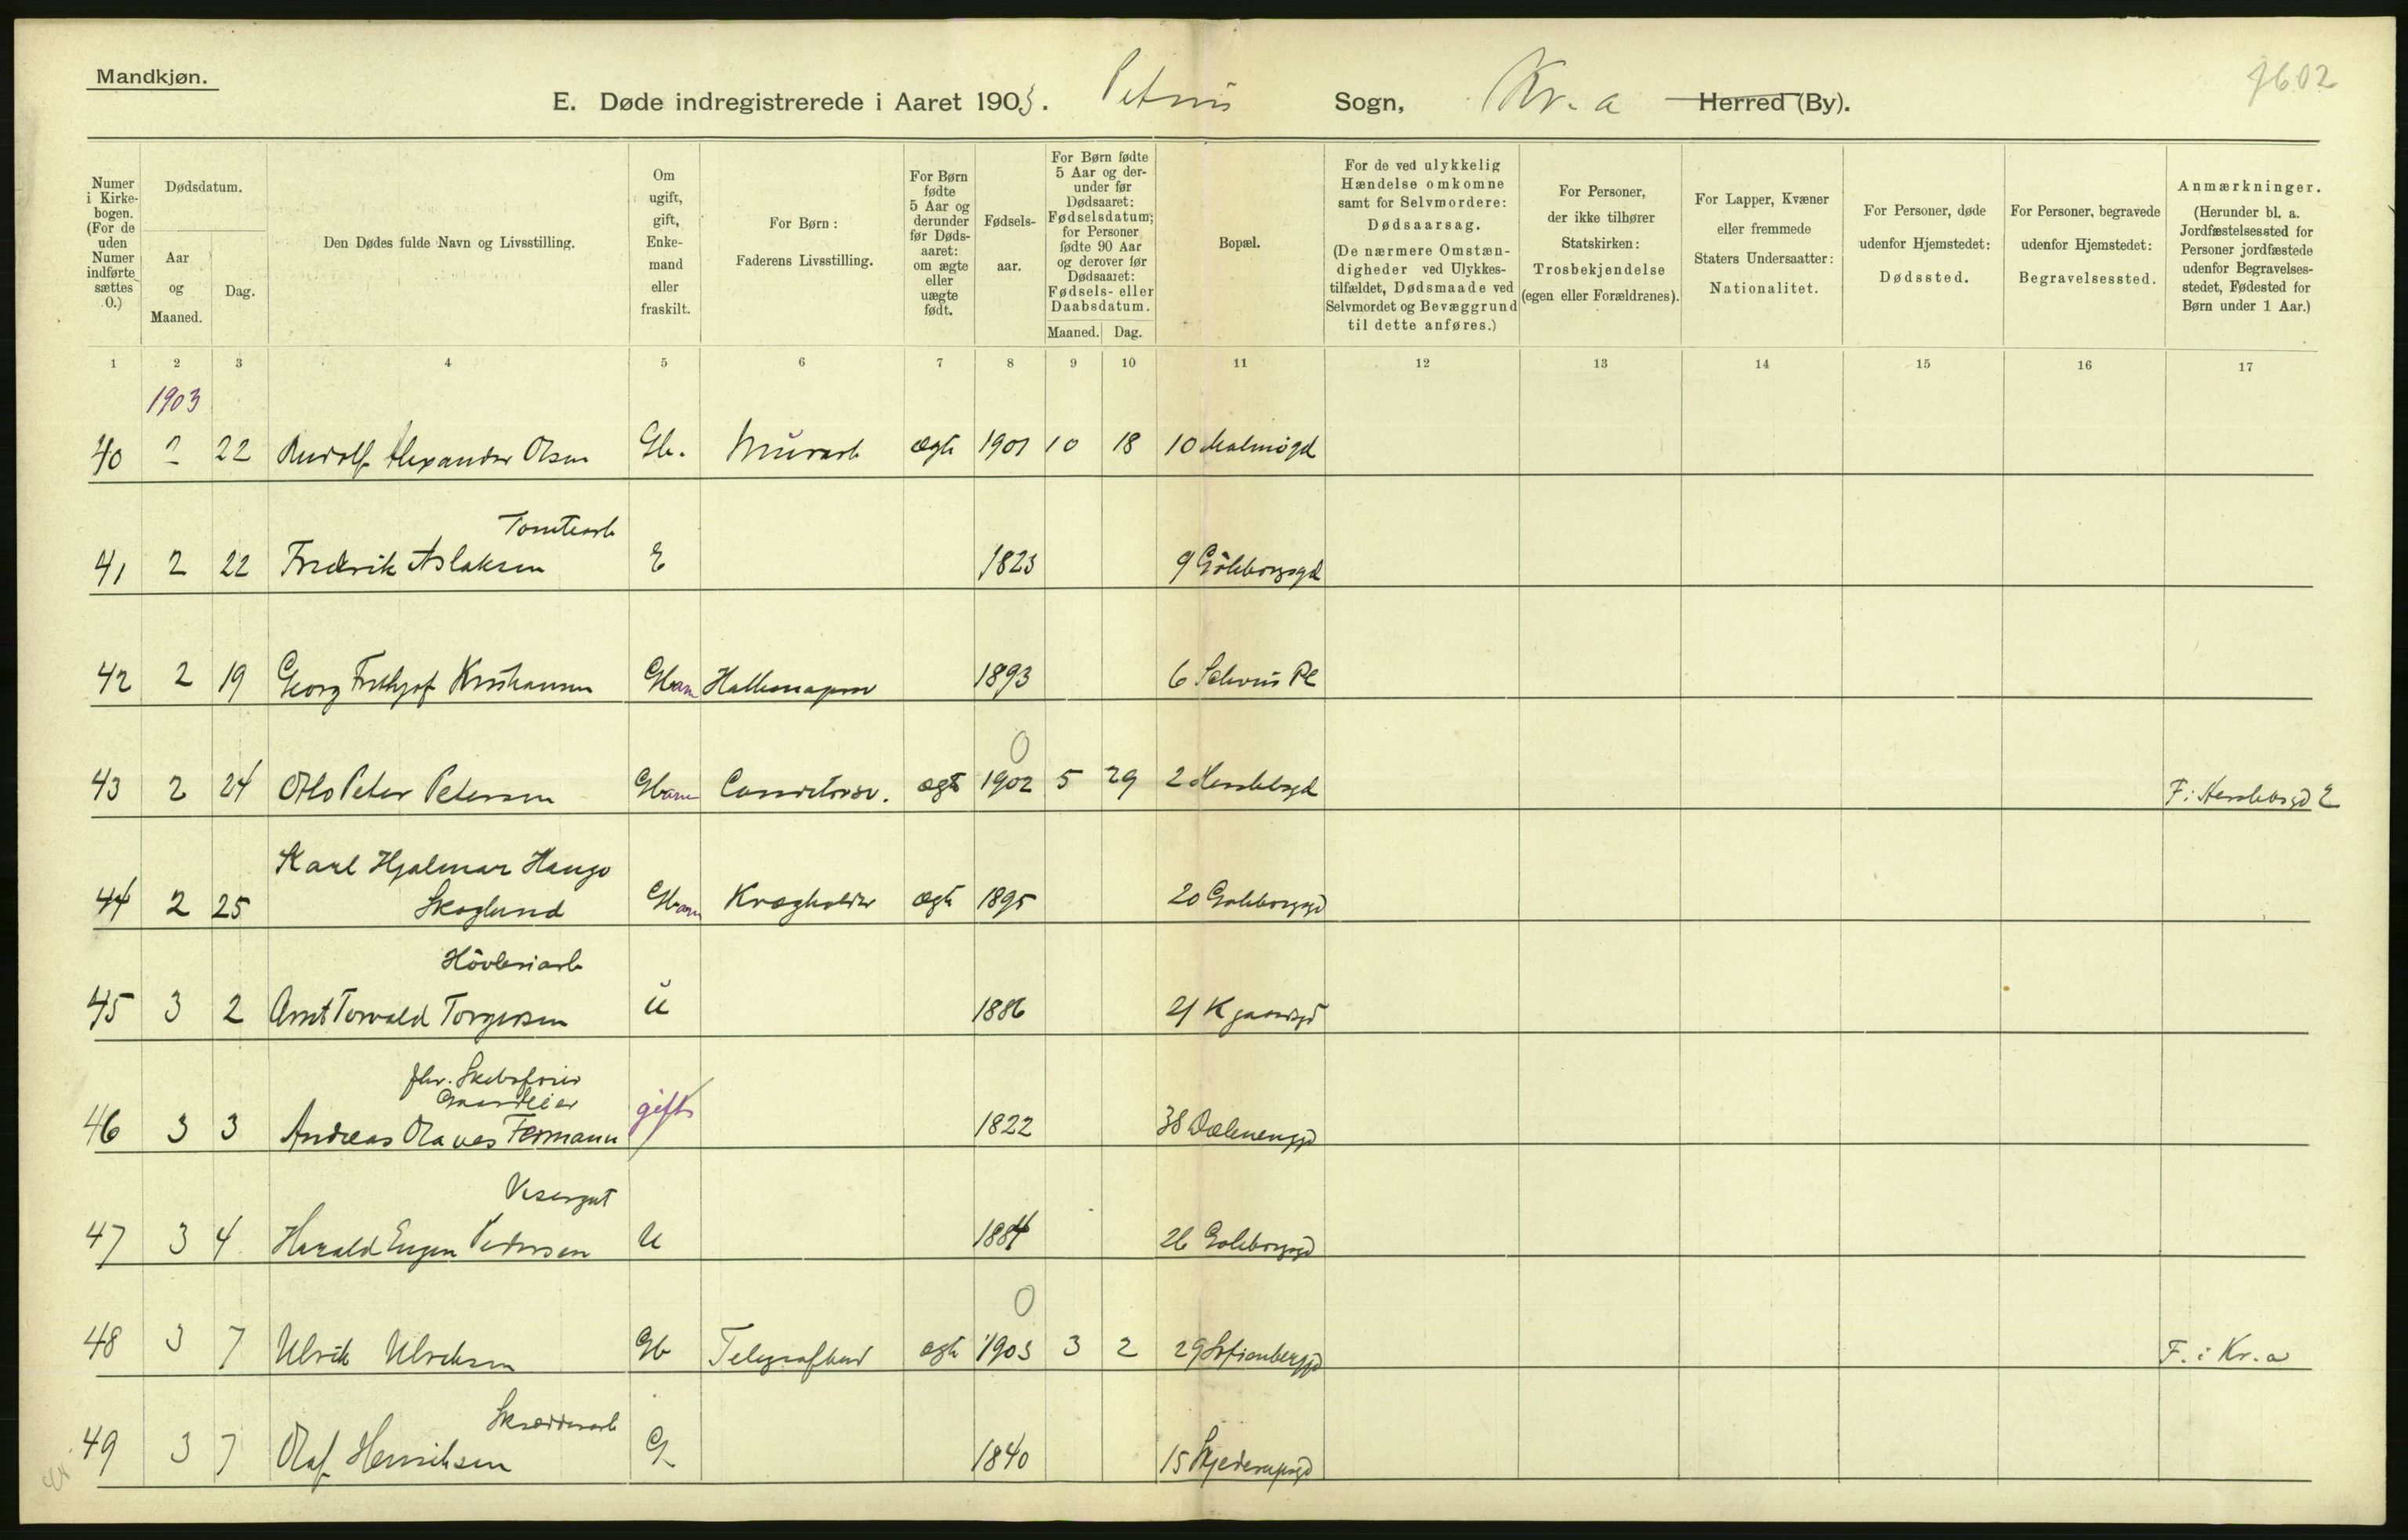 Mandkjøn.
E. Døde indregistrerede i Aaret 1903. Petrus Sogn, Kr.a Herred (By).
7602
Numer i Kirkebogen. (For de uden Numer indførte sættes 0.)
Dødsdatum.
Aar og Maaned.
Dag.
Den Dødes fulde Navn og Livsstilling.
Om ugift, gift, Enkemand eller fraskilt.
For Børn: Faderens Livsstilling.
For Børn fødte 5 Aar og derunder før Dødsaaret: om ægte eller uægte født.
Fødselsaar.
For Børn fødte 5 Aar og derunder før Dødsaaret: Fødselsdatum; for Personer fødte 90 Aar og derover før Dødsaaret: Fødsels- eller Daabsdatum.
Maaned. Dag.
Bopæl.
For de ved ulykkelig Hændelse omkomne samt for Selvmordere: Dødsaarsag. (De nærmere Omstændigheder ved Ulykkestilfældet, Dødsmaade ved Selvmordet og Bevæggrund til dette anføres.)
For Personer, der ikke tilhører Statskirken: Trosbekjendelse (egen eller Forældrenes).
For Lapper, Kvæner eller fremmede Staters Undersaatter: Nationalitet.
For Personer, døde udenfor Hjemstedet: Dødssted.
For Personer, begravede udenfor Hjemstedet: Begravelsessted.
Anmærkninger. (Herunder bl. a. Jordfæstelsessted for Personer jordfæstede udenfor Begravelsesstedet, Fødested for Børn under 1 Aar.)
1 2 3 4 5 6 7 8 9 10 11 12 13 14 15 16 17
1903
40 2 22 Rudolf Alexander Olsen Gb. Murarb ægte 1901 10 18 10 Malmøgd
Tomtearb
41 2 22 Fredrik Aslaksen E 1823 9 Göteborgsgd
42 2 19 Georg Frithjof Kristiansen Gbarn 1893 6 Schous Pl
0
43 2 24 Otto Peter Petersen Gbarn ægte 1902 5 29 2 Herslebsgd F: Herslebsgd 2
Karl Hjalmar Haugo
44 2 25 Skoglund Gbarn ægte 1895 20 Goteborgsgd
Hövleriarb
45 3 2 Arnt Torvald Torgersen U 1886 21
Gaardeier
46 3 3 Andreas Olaves Fermann gift 1822 38 Dælenenggd
Visergut
47 3 4 Harald Eugen Pedersen U 1884 26 Goteborgsgd
0
48 3 7 Ulrik Ulriksen Gb Telegrafbud ægte 1903 3 2 29 Sofienberggd F. i Kr.a
Skrædderarb
49 3 7 Olaf Henriksen G 1840 15